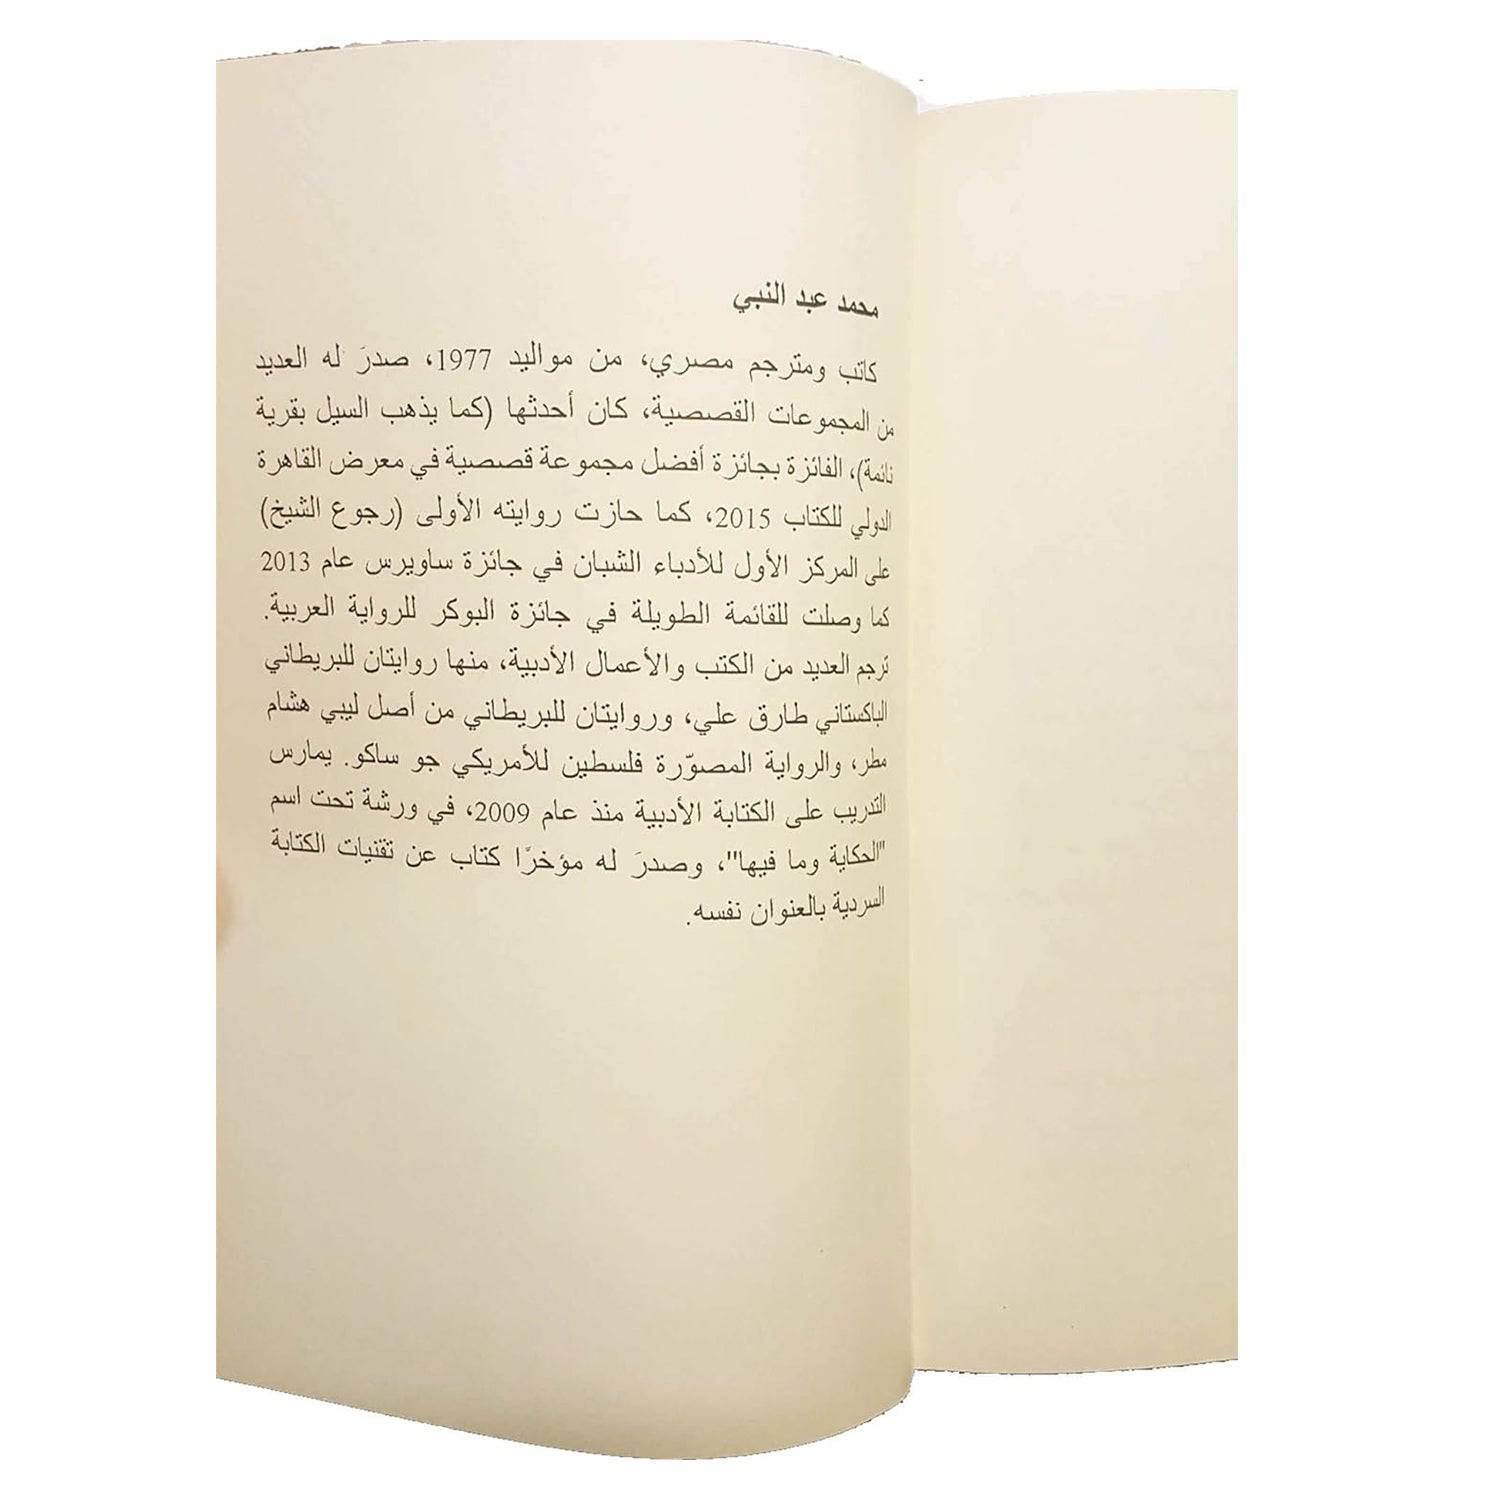 محمد عبد النبي
كاتب ومترجم مصري، من مواليد 1977، صدرَ له العديد
من المجموعات القصصية، كان أحدثها (كما يذهب السيل بقرية
نائمة)، الفائزة بجائزة أفضل مجموعة قصصية في معرض القاهرة
الدولي للكتاب 2015، كما حازت روايته الأولى (رجوع الشيخ)
على المركز الأول للأدباء الشبان في جائزة ساويرس عام 2013
كما وصلت للقائمة الطويلة في جائزة البوكر للرواية العربية.
ترجم العديد من الكتب والأعمال الأدبية، منها روايتان للبريطاني
الباكستاني طارق علي، وروايتان للبريطاني من أصل ليبي هشام
مطر، والرواية المصوّرة فلسطين للأمريكي جو ساكو. يمارس
التدريب على الكتابة الأدبية منذ عام 2009، في ورشة تحت اسم
"الحكاية وما فيها"، وصدرَ له مؤخرًا كتاب عن تقنيات الكتابة
السردية بالعنوان نفسه.